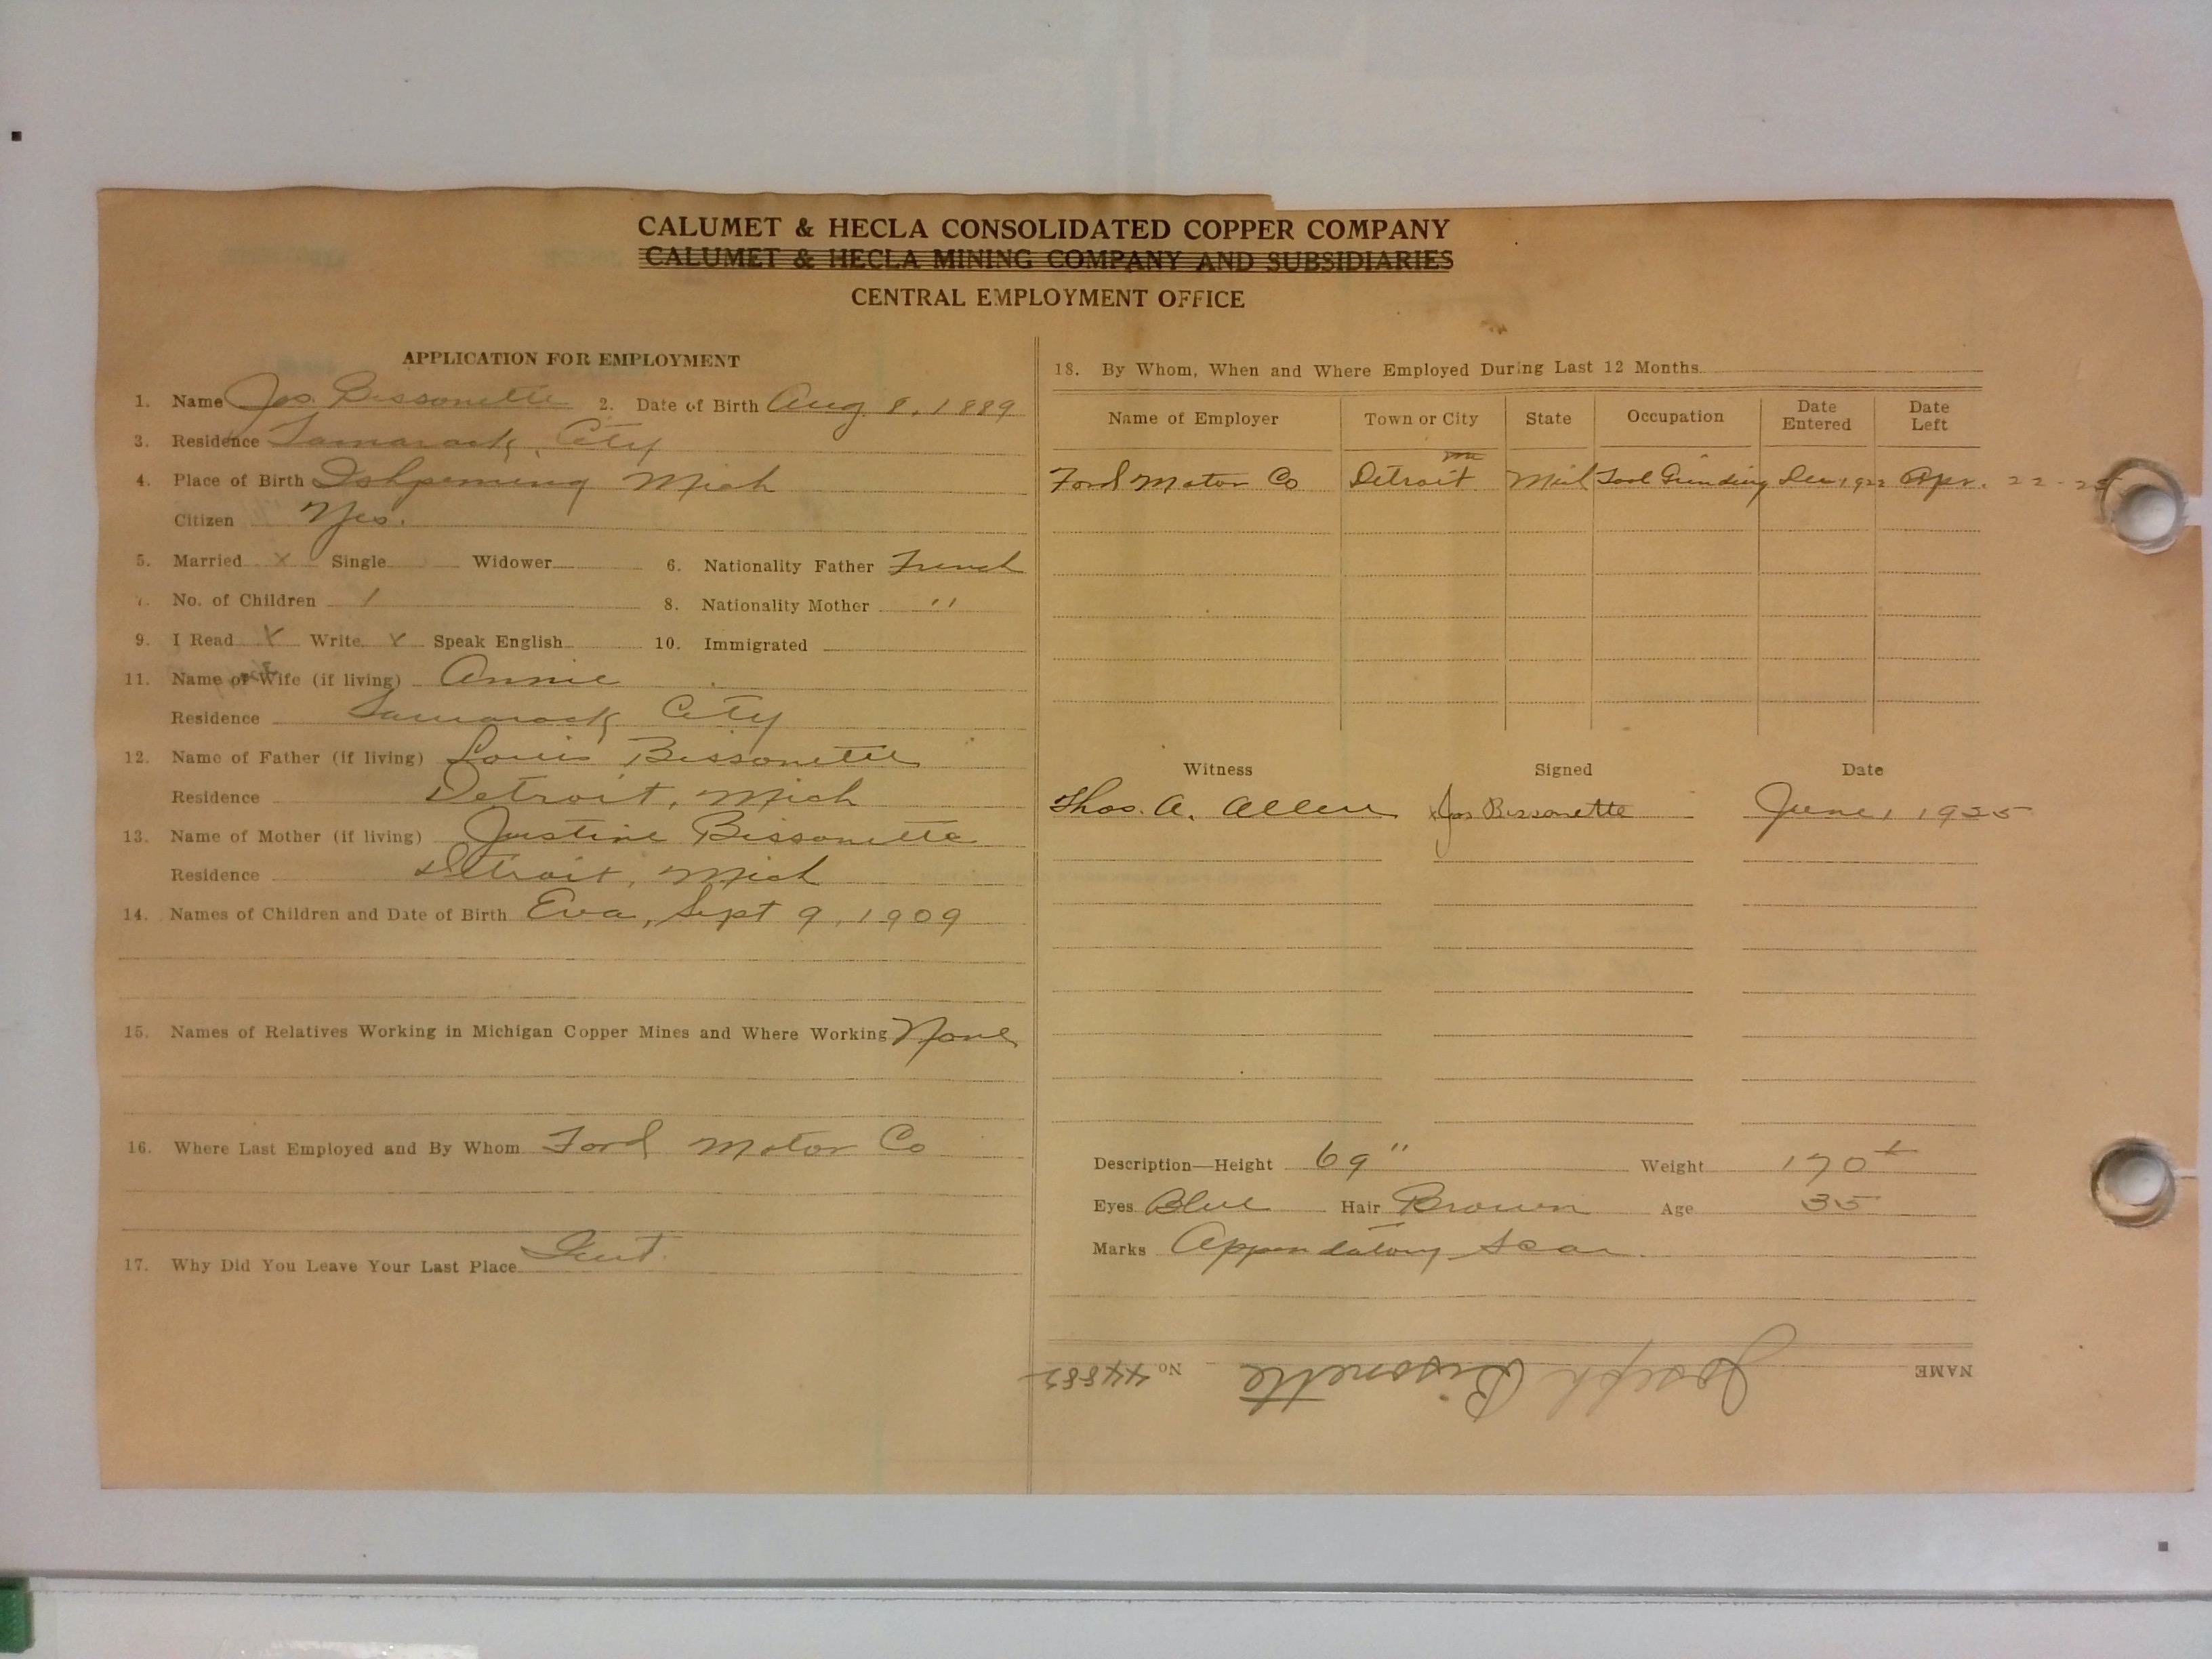 CALUMET & HECLA CONSOLIDATED COPPER COMPANY
CALUMET & HECLA MINING COMPANY AND SUBSIDIARIES
CENTRAL EMPLOYMENT OFFICE
APPLICATION FOR EMPLOYMENT
1. Name Jos. Bissonette 2. Date of Birth Aug. 8, 1889
3. Residence Tamarack City
4. Place of Birth Ishpeming Mich
Citizen Yes.
5. Married x Single Widower 6. Nationality Father French
7. No. of Children 1 8. Nationality Mother "
9. I Read X Write X Speak English 10. Immigrated
11. Name of Wife (if living) Annie
Residence Tamarack City
12. Name of Father (if living) Louis Bissonette
Residence Detroit, Mich
13. Name of Mother (if living) Justine Bissonette
Residence Detroit, Mich
14. Names of Children and Date of Birth Eva, Sept 9, 1909
15. Names of Relatives Working in Michigan Copper Mines and Where Working None
16. Where Last Employed and By Whom Ford Motor Co
17. Why Did You Leave Your Last Place
18. By Whom, When and Where Employed During Last 12 Months
Name of Employer Town or City State Occupation Date Entered Date Left
Ford Motor Co Detroit Mich Tool Grinding Dec 1922 Apr. 22-25
Witness Signed Date
Thos. A. Allen x Jos Bissonette June 1 1925
Description—Height 69" Weight 170
Eyes Blue Hair Brown Age 35
Marks Appendatory Scar
NAME Joseph Bissonette No. 44882